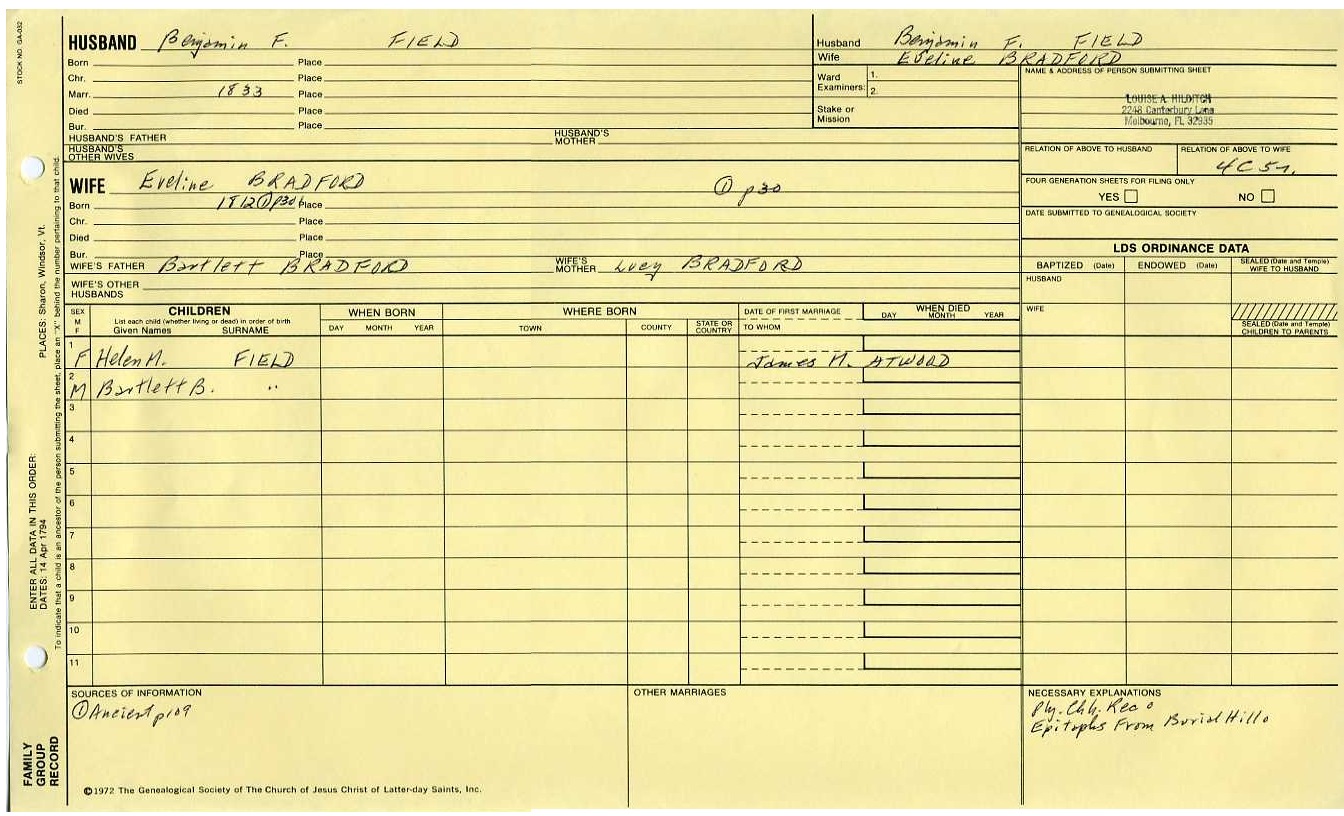 STOCK NO GA-032
HUSBAND Benjamin F. FIELD
Born Place
Chr. Place
Marr. 1833 Place
Died Place
Bur. Place
HUSBAND'S FATHER HUSBAND'S MOTHER
HUSBAND'S OTHER WIVES
Husband Benjamin F. FIELD
Wife Eveline BRADFORD
Ward Examiners: 1. 2.
Stake or Mission
NAME & ADDRESS OF PERSON SUBMITTING SHEET
LOUISE A. HILDITCH
2248 Canterbury Lane
Melbourne, FL 32935
RELATION OF ABOVE TO HUSBAND RELATION OF ABOVE TO WIFE
4C5r.
FOUR GENERATION SHEETS FOR FILING ONLY
YES NO
DATE SUBMITTED TO GENEALOGICAL SOCIETY
WIFE Eveline BRADFORD ① p30
Born 1812 ① p30 Place
Chr. Place
Died Place
Bur. Place
WIFE'S FATHER Bartlett BRADFORD WIFE'S MOTHER Lucy BRADFORD
WIFE'S OTHER HUSBANDS
LDS ORDINANCE DATA
BAPTIZED (Date) ENDOWED (Date) SEALED (Date and Temple) WIFE TO HUSBAND
HUSBAND
WIFE
SEALED (Date and Temple) CHILDREN TO PARENTS
SEX M F
CHILDREN
List each child (whether living or dead) in order of birth
Given Names SURNAME
WHEN BORN
DAY MONTH YEAR
WHERE BORN
TOWN COUNTY STATE OR COUNTRY
DATE OF FIRST MARRIAGE
TO WHOM
WHEN DIED
DAY MONTH YEAR
1 F Helen M. FIELD James M. ATWOOD
2 M Bartlett B. "
3
4
5
6
7
8
9
10
11
SOURCES OF INFORMATION
① Ancient p109
OTHER MARRIAGES
NECESSARY EXPLANATIONS
Ply. Chh. Rec.
Epitaphs From Burial Hill
©1972 The Genealogical Society of The Church of Jesus Christ of Latter-day Saints, Inc.
FAMILY GROUP RECORD
ENTER ALL DATA IN THIS ORDER:
DATES: 14 Apr 1794
PLACES: Sharon, Windsor, Vt.
To indicate that a child is an ancestor of the person submitting the sheet, place an "X" behind the number pertaining to that child.